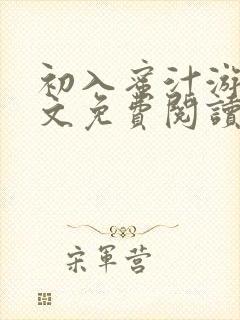 初入蜜汁游
文免費閱讀
宋軍营